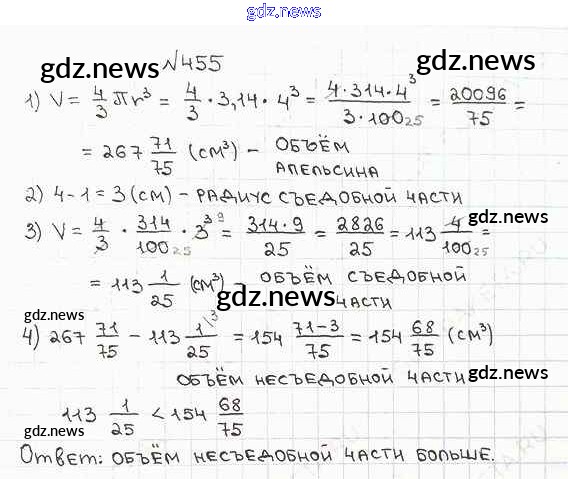 gdz.news
№455
gdz.news gdz.news
1) V = 4/3 πr³ = 4/3 · 3,14 · 4³ = 4·314·4³/3·100₂₅ = 20096/75 =
= 267 71/75 (см³) – ОБЪЁМ АПЕЛЬСИНА
2) 4-1=3 (см) – РАДИУС СЪЕДОБНОЙ ЧАСТИ
gdz.news
3) V = 4/3 · 314/100₂₅ · 3³ ⁹ = 314·9/25 = 2826/25 = 113 4/100₂₅ =
= 113 1/25 (см³) – ОБЪЁМ СЪЕДОБНОЙ ЧАСТИ
gdz.news
gdz.news gdz.news
4) 267 71/75 – 113 1\³/25 = 154 71-3/75 = 154 68/75 (см³)
ОБЪЁМ НЕСЪЕДОБНОЙ ЧАСТИ
gdz.news
113 1/25 < 154 68/75
gdz.news
Ответ: ОБЪЁМ НЕСЪЕДОБНОЙ ЧАСТИ БОЛЬШЕ.
gdz.news